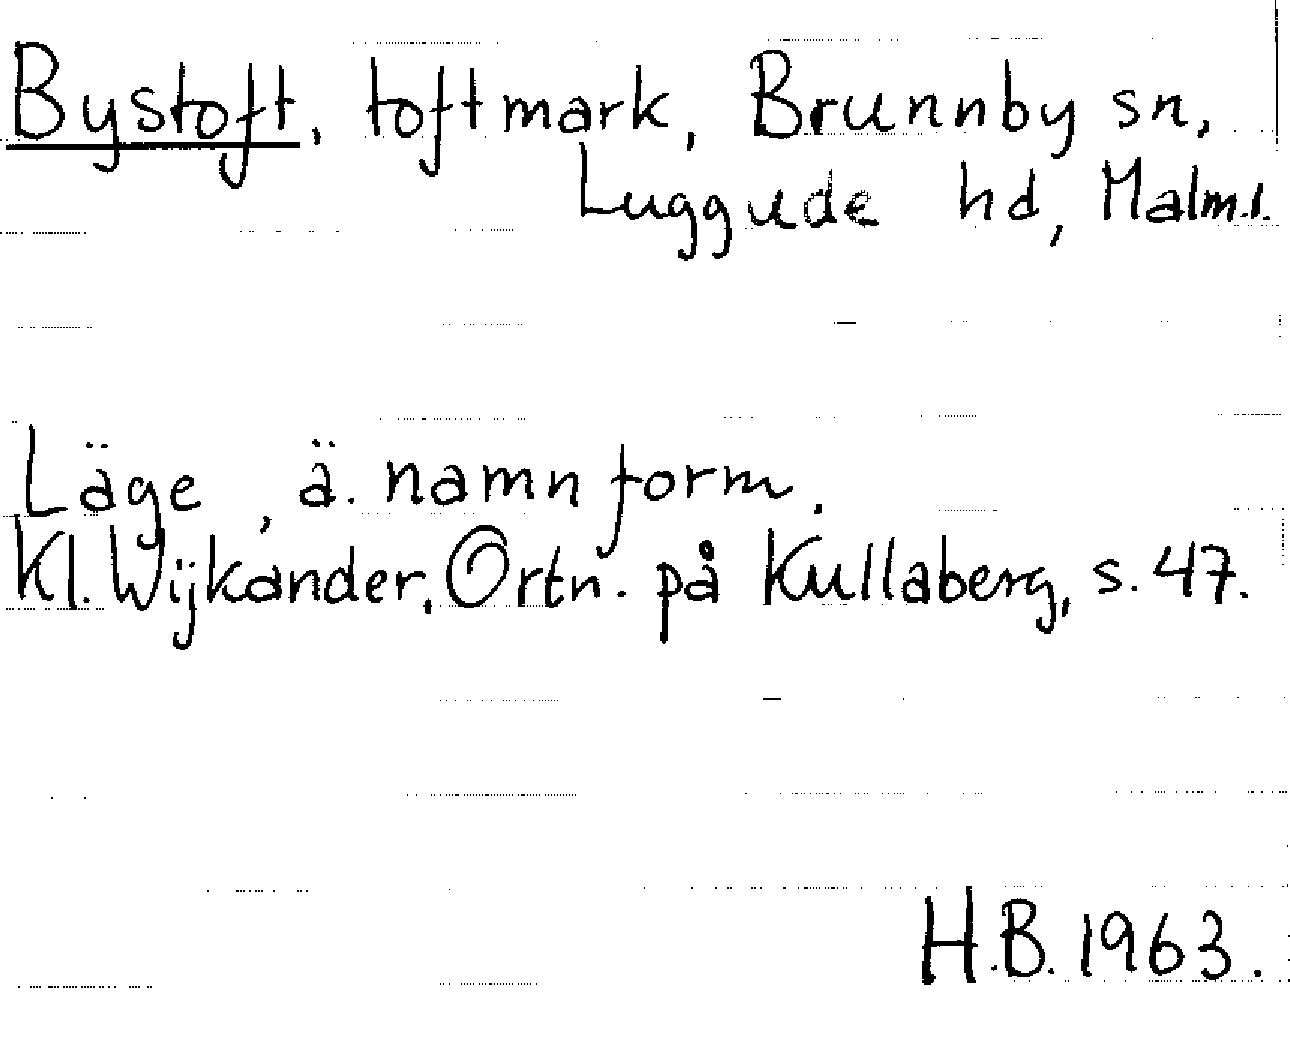 Bystoft, toftmark, Brunnby sn,
Luggude hd, Malm.l.
Läge, ä. namnform.
Kl. Wijkander, Ortn. på Kullaberg, s. 47.
H.B. 1963.